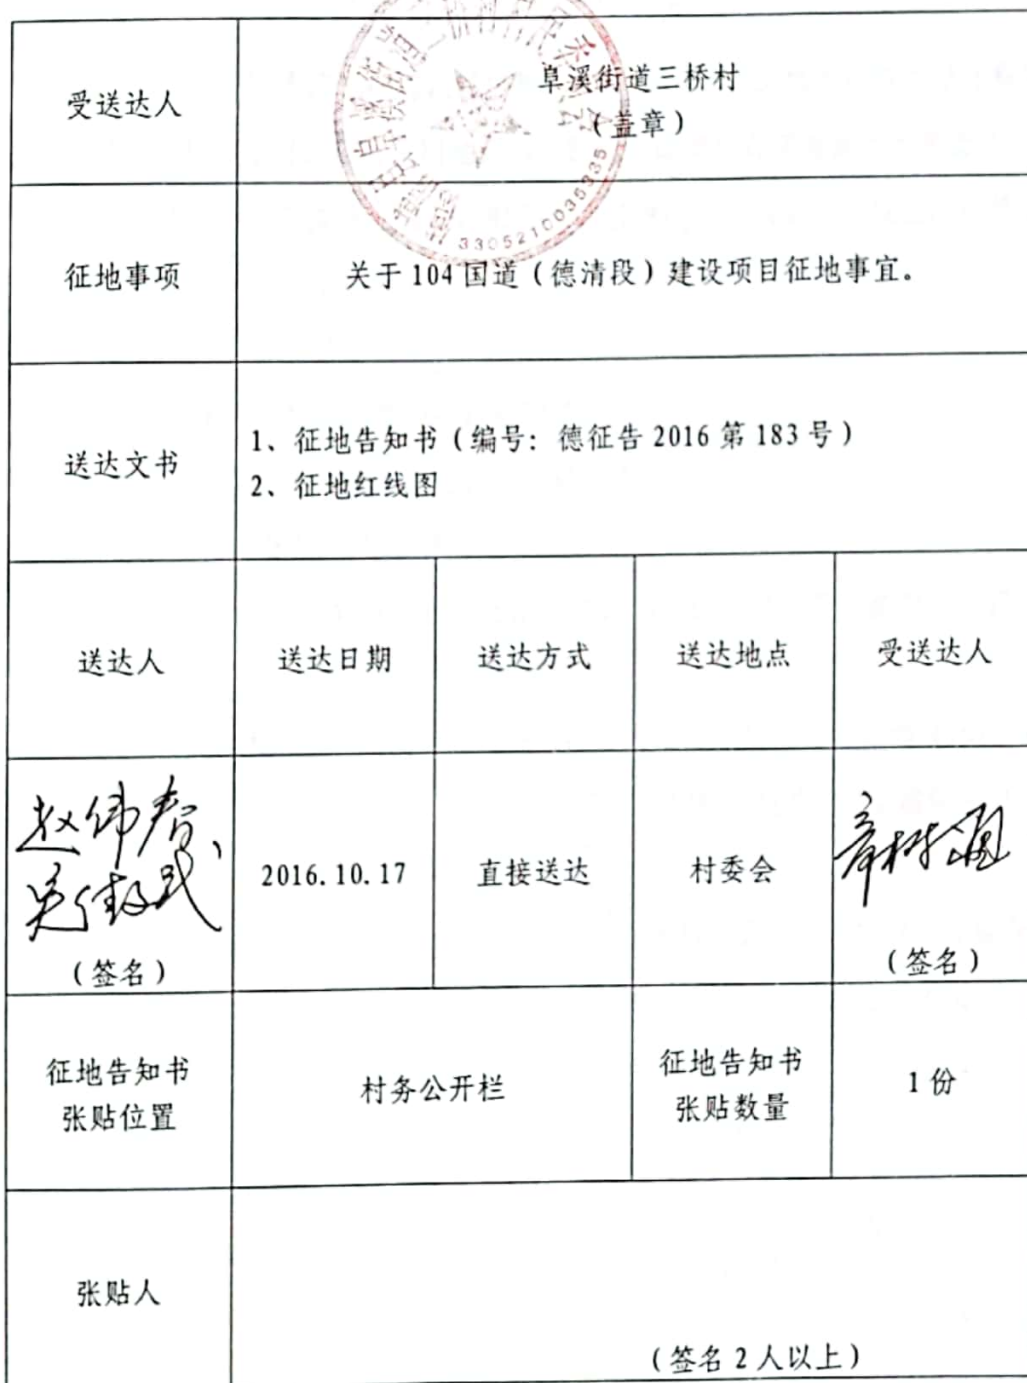 受送达人
阜溪街道三桥村
（盖章）
3305210035335
征地事项
关于104国道（德清段）建设项目征地事宜。
送达文书
1、征地告知书（编号：德征告2016第183号）
2、征地红线图
送达人 送达日期 送达方式 送达地点 受送达人
赵伟春
2016.10.17 直接送达 村委会
章树通
（签名） （签名）
征地告知书
张贴位置
村务公开栏
征地告知书
张贴数量
1份
张贴人
（签名2人以上）